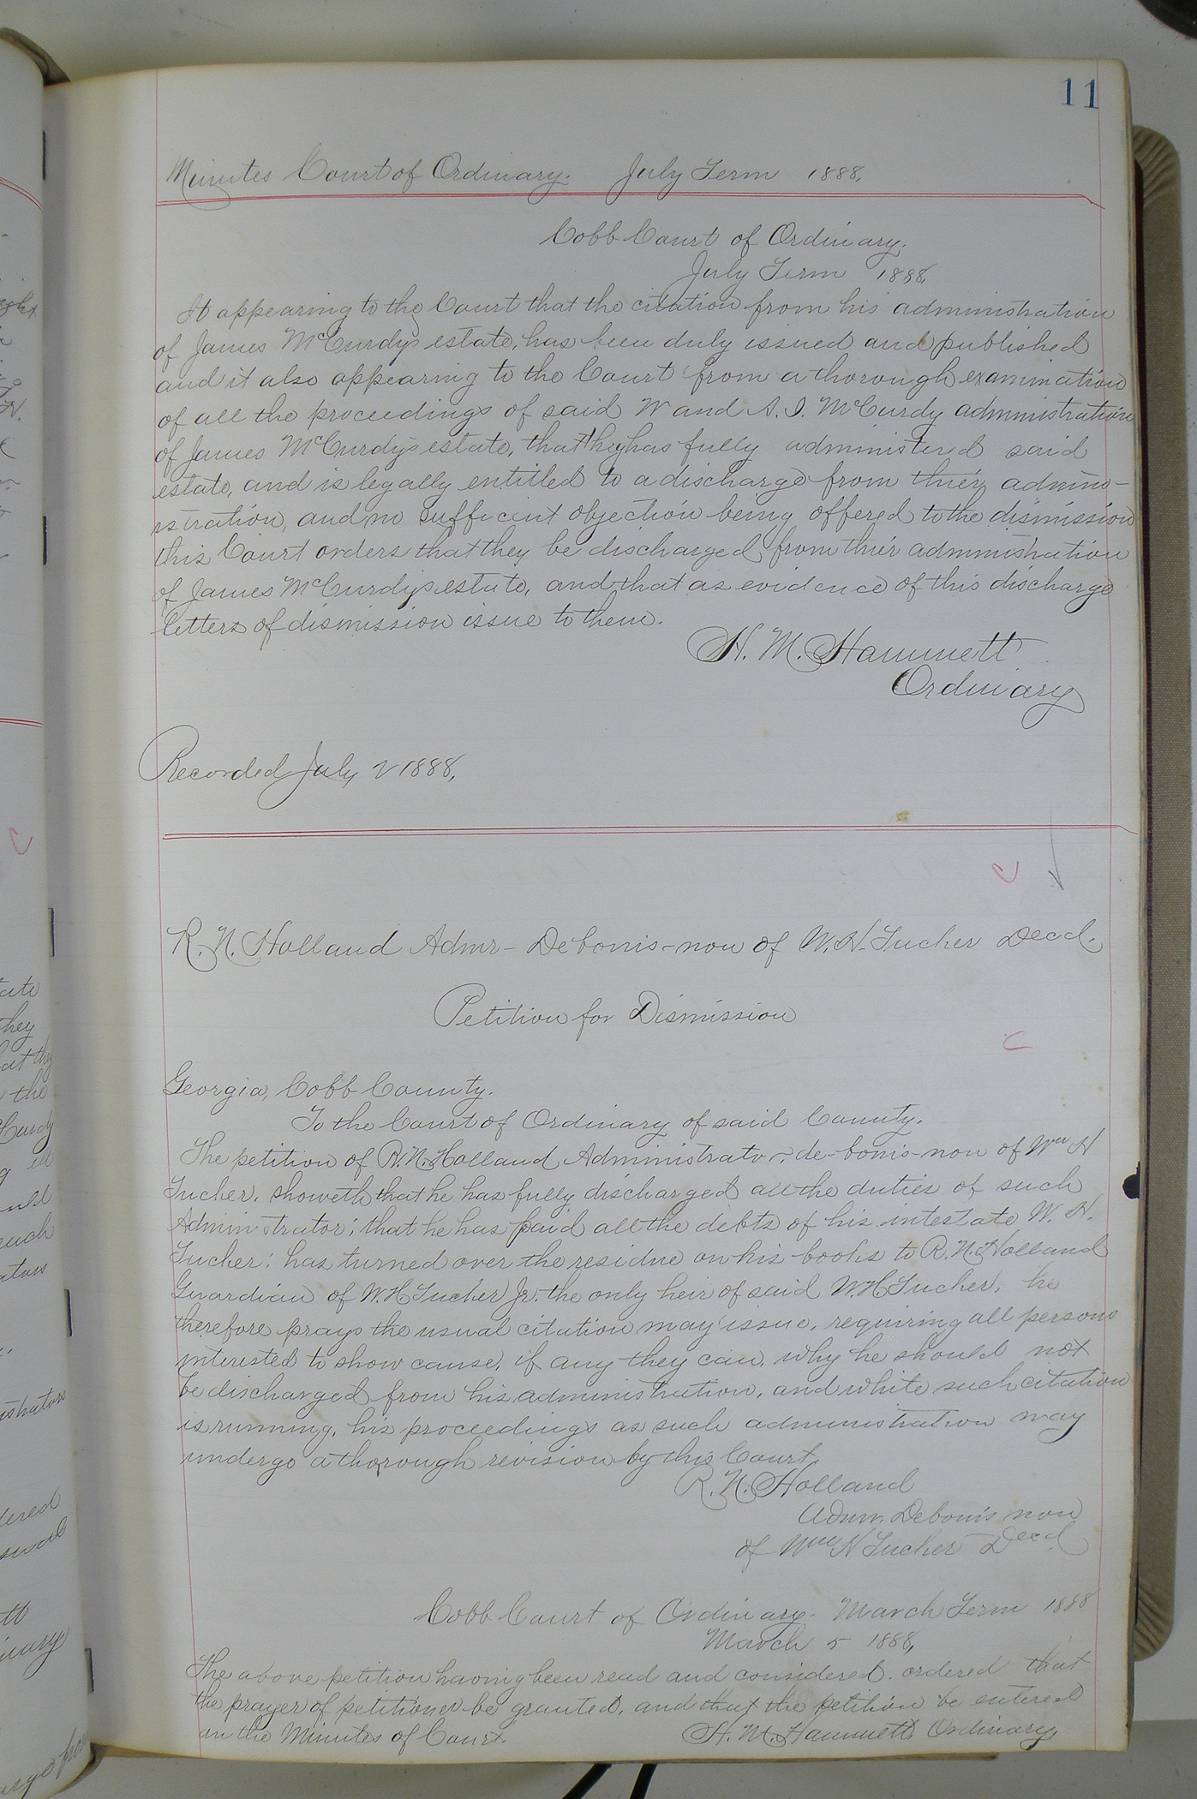 11
Minutes Court of Ordinary. July Term 1888,
Cobb Court of Ordinary.
July Term 1888,
It appearing to the Court that the citation from his administration
of James McCurdys estate, has been duly issued and published
and it also appearing to the Court from a thorough examination
of all the proceedings of said W and A. I. McCurdy administration
of James McCurdys estate, that they has fully administered said
estate, and is legally entitled to a discharge from thier admin-
istration, and no sufficient objection being offered to the dismission
this Court orders that they be discharged from thier administration
of James McCurdys estate, and that as evidence of this discharge
letters of dismission issue to them.
H. M. Hammett
Ordinary
Recorded July 2 1888,
R. N. Holland Admr- Debonis-non of W. H. Tucker Decd.
Petition for Dismission
Georgia, Cobb County.
To the Court of Ordinary of said County.
The petition of R. N. Holland Administrator de-bonis-non of Wm H
Tucker. showeth that he has fully discharged all the duties of such
Administrator; that he has paid all the debts of his intestate W. H.
Tucker; has turned over the residue on his books to R. N. Holland
Guardian of W. H Tucker Jr. the only heir of said W. H Tucker. he
therefore prays the usual citation may issue, requiring all persons
interested to show cause, if any they can, why he should not
be discharged from his administration, and while such citation
is running, his proceedings as such administration may
undergo a thorough revision by this Court,
R. N. Holland
Admr. Debonis non
of Wm H Tucker Decd
Cobb Court of Ordinary- March Term 1888
March 5 1888,
The above petition having been read and considered. ordered that
the prayer of petitioner be granted, and that the petition be entered
on the Minutes of Court H. M. Hammett Ordinary,